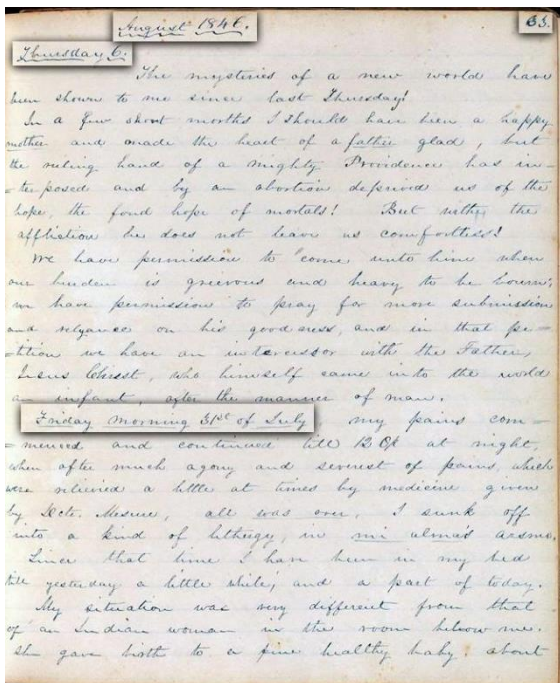 August 1846.
33.
Thursday 6.
The mysteries of a new world have
been shown to me since last Thursday!
In a few short months I should have been a happy
mother and made the heart of a father glad, but
the ruling hand of a mighty Providence has in-
=terposed and by an abortion deprived us of the
hope, the fond hope of mortals! But with the
affliction he does not leave us comfortless!
We have permission to "come unto him when
our burden is grievous and heavy to be bourn;
we have permission to pray for more submission
and relyance on his goodness, and in that pe=
=tition we have an intercessor with the Father,
Jesus Christ, who himself came into the world
an infant, after the manner of man.
Friday morning 31st of July my pains com=
=menced and continued till 12 Ock at night,
when after much agony and severest of pains, which
were relieved a little at times by medicine given
by Doctr. Mesure, all was over. I sunk off
into a kind of lethergy, in mi alma's arms.
Since that time I have been in my bed
till yesterday a little while, and a part of today.
My situation was very different from that
of an Indian woman in the room below me.
She gave birth to a fine healthy baby, about